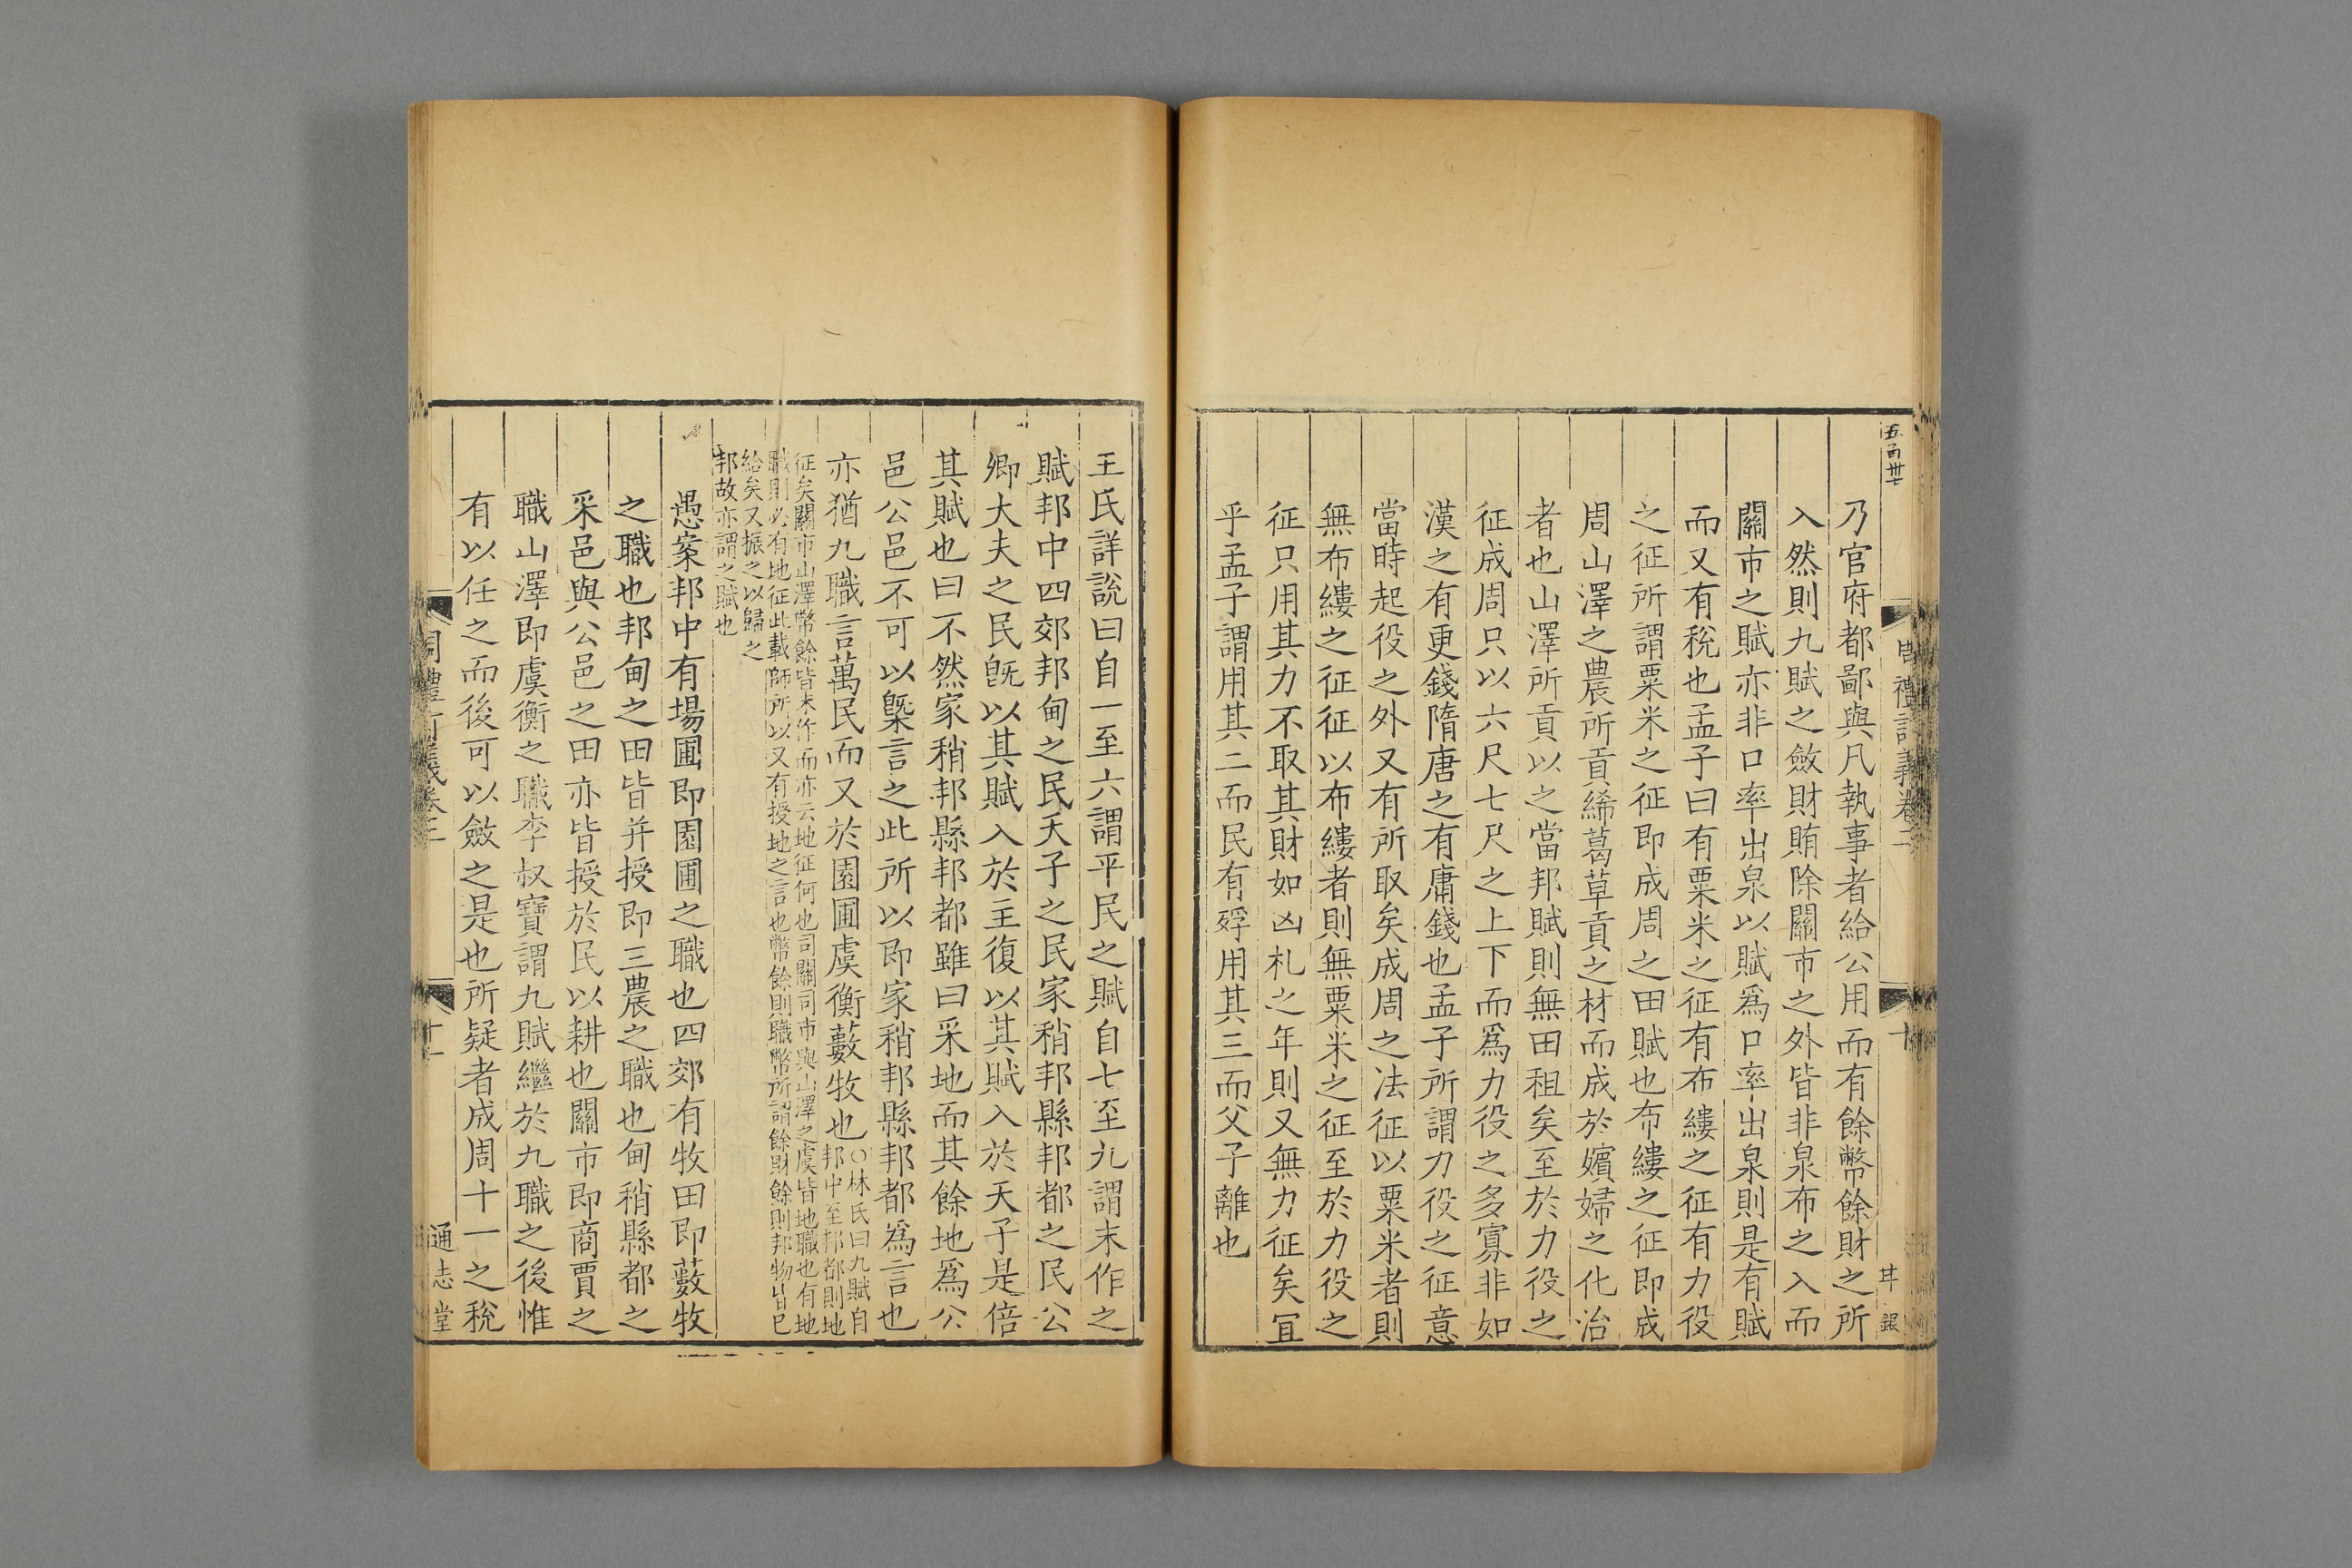 五百卅七
周禮訂義卷二
十
乃官府都鄙與凡執事者給公用而有餘幣餘財之所
入然則九賦之斂財賄除關市之外皆非泉布之入而
關市之賦亦非口率出泉以賦爲口率出泉則是有賦
而又有稅也孟子曰有粟米之征有布縷之征有力役
之征所謂粟米之征即成周之田賦也布縷之征即成
周山澤之農所貢絺葛草貢之材而成於嬪婦之化治
者也山澤所貢以之當邦賦則無田租矣至於力役之
征成周只以六尺七尺之上下而爲力役之多寡非如
漢之有更錢隋唐之有庸錢也孟子所謂力役之征意
當時起役之外又有所取矣成周之法征以粟米者則
無布縷之征征以布縷者則無粟米之征至於力役之
征只用其力不取其財如凶札之年則又無力征矣宜
乎孟子謂用其二而民有殍用其三而父子離也
王氏詳說曰自一至六謂平民之賦自七至九謂末作之
賦邦中四郊邦甸之民天子之民家稍邦縣邦都之民公
卿大夫之民旣以其賦入於主復以其賦入於天子是倍
其賦也曰不然家稍邦縣邦都雖曰采地而其餘地爲公
邑公邑不可以槩言之此所以即家稍邦縣邦都爲言也
亦猶九職言萬民而又於園圃虞衡藪牧也○林氏曰九賦自
邦中至邦都則地
征矣關市山澤幣餘皆末作而亦云地征何也司關司市與山澤之虞皆地職也有地
職則必有地征此載師所以又有授地之言也幣餘則職幣所謂餘財餘則邦物皆已
給矣又振之以歸之
邦故亦謂之賦也
愚案邦中有場圃即園圃之職也四郊有牧田即藪牧
之職也邦甸之田皆并授即三農之職也甸稍縣都之
采邑與公邑之田亦皆授於民以耕也關市即商賈之
職山澤即虞衡之職李叔寶謂九賦繼於九職之後惟
有以任之而後可以斂之是也所疑者成周十一之稅
周禮訂義卷二
十一
通志堂